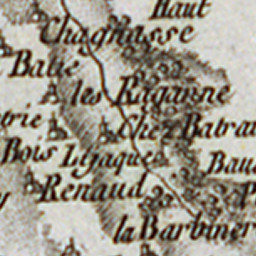 Haut
Chagnasse
Batie
les Raganne
Chez Batrau
Bois Lejaque
Bau
Renaud
la Barbiner